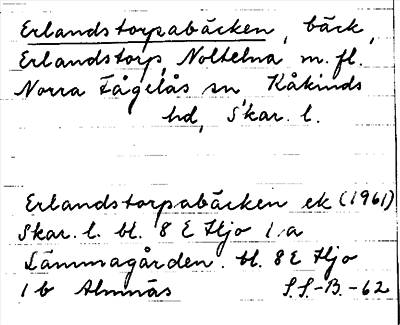 Erlandstorpabäcken, bäck,
Erlandstorp, Noltelna m. fl.
Norra Fågelås sn, Kåkinds
hd, Skar. l.
Erlandstorpabäcken ek (1961)
Skar. l. bl. 8 E Hjo 1 a
Lämmagården. bl. 8 E Hjo
1 b Almnäs S.S.-B.-62